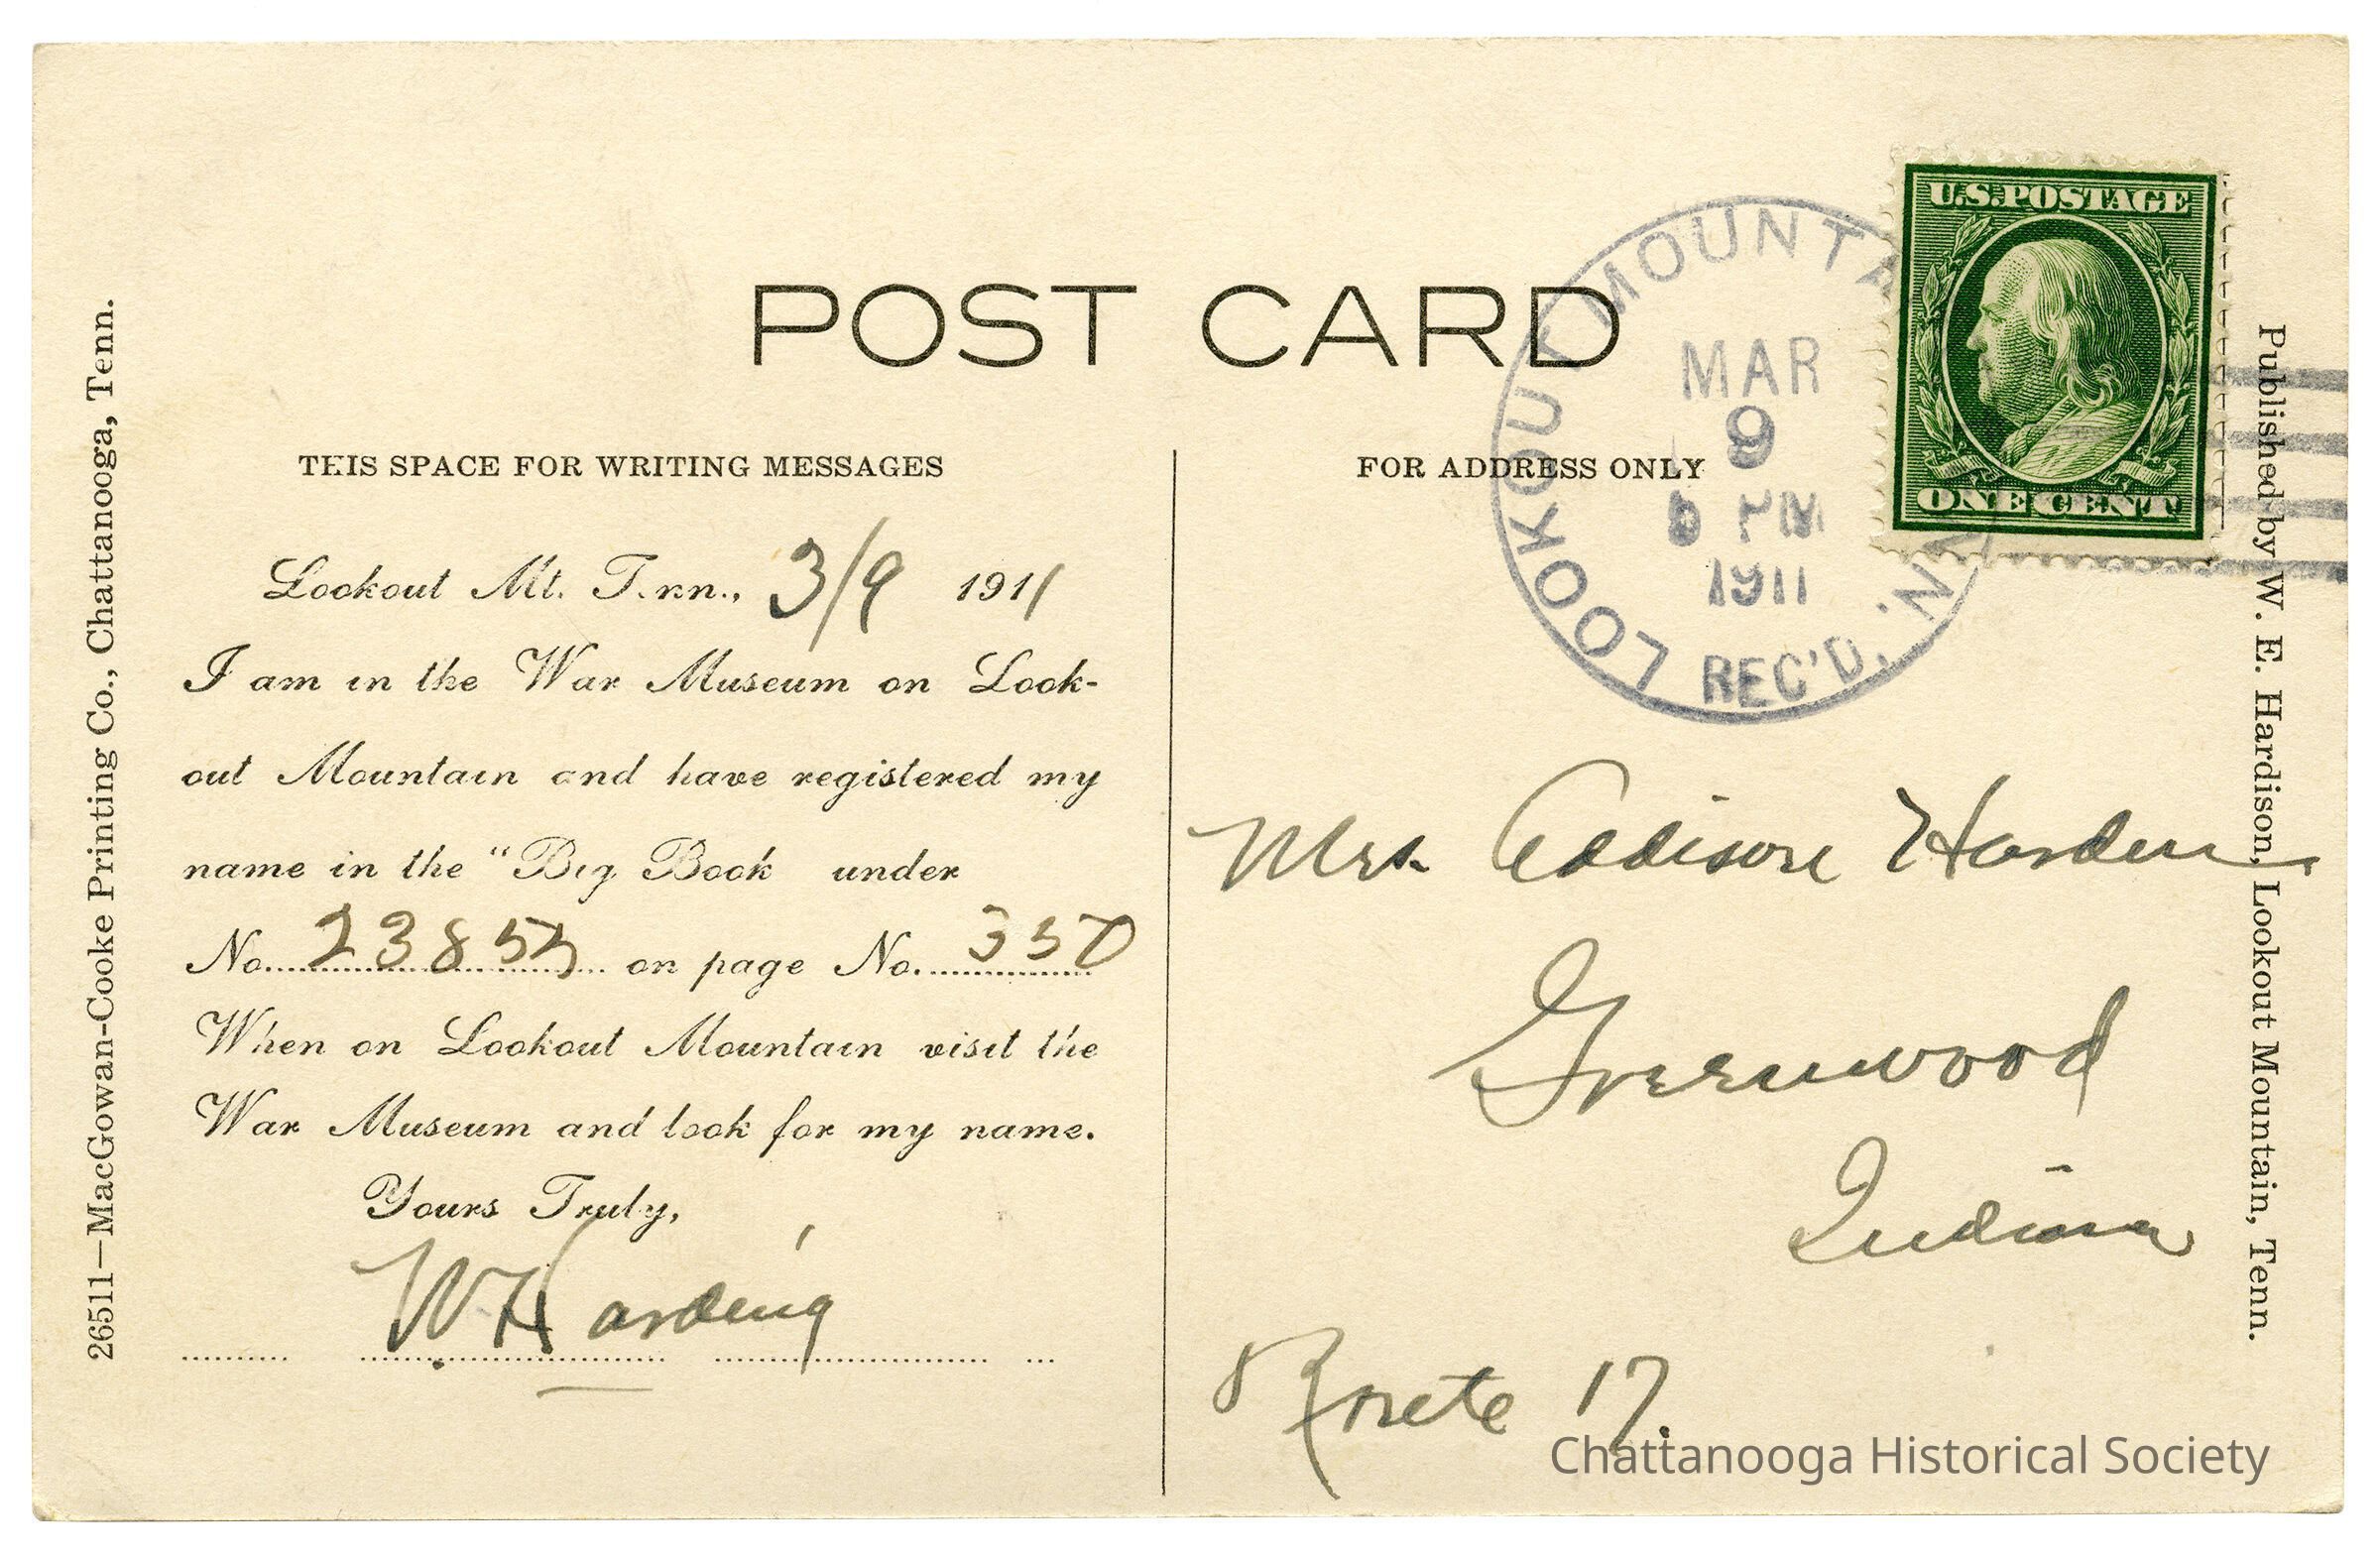 26511—MacGowan-Cooke Printing Co., Chattanooga, Tenn.
POST CARD
THIS SPACE FOR WRITING MESSAGES
Lookout Mt. Tenn., 3/9 1911
I am in the War Museum on Look-
out Mountain and have registered my
name in the "Big Book under
No. 23855 on page No. 350
When on Lookout Mountain visit the
War Museum and look for my name.
Yours Truly,
W. Harding
FOR ADDRESS ONLY
LOOKOUT MOUNTA
MAR
9
PM
1911
REC'D.
U.S. POSTAGE
ONE CENT
Mrs. Addison Harden
Greenwood
Indiana
Route 17.
Published by W. E. Hardison, Lookout Mountain, Tenn.
Chattanooga Historical Society